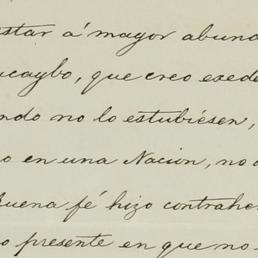 star á mayor abuna
ucaybo, que creo exede
ndo no lo estubiésen,
o en una Nacion, no a
Buena fé hizo contraher
o presente en que no